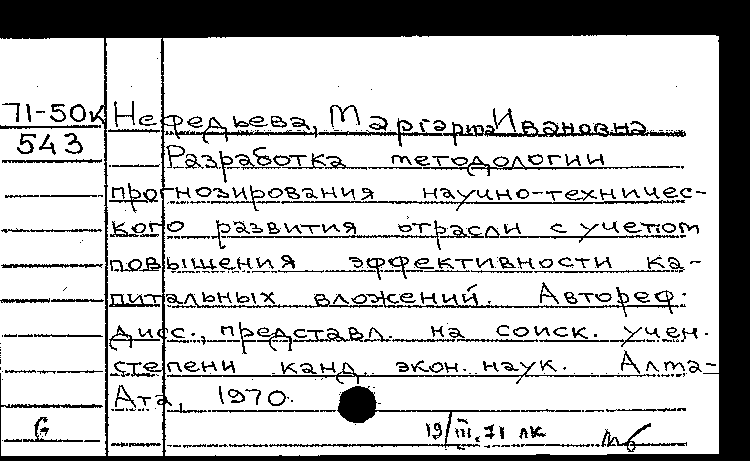 71-50к Нефедьева, Маргарита Ивановна
543 Разработка методологии
прогнозирования научно-техничес-
кого развития отрасли с учетом
повышения эффективности ка-
питальных вложений. Автореф.
дисс., представл. на соиск. учен.
степени канд. экон. наук. Алма-
Ата, 1970.
19/III.71 лк